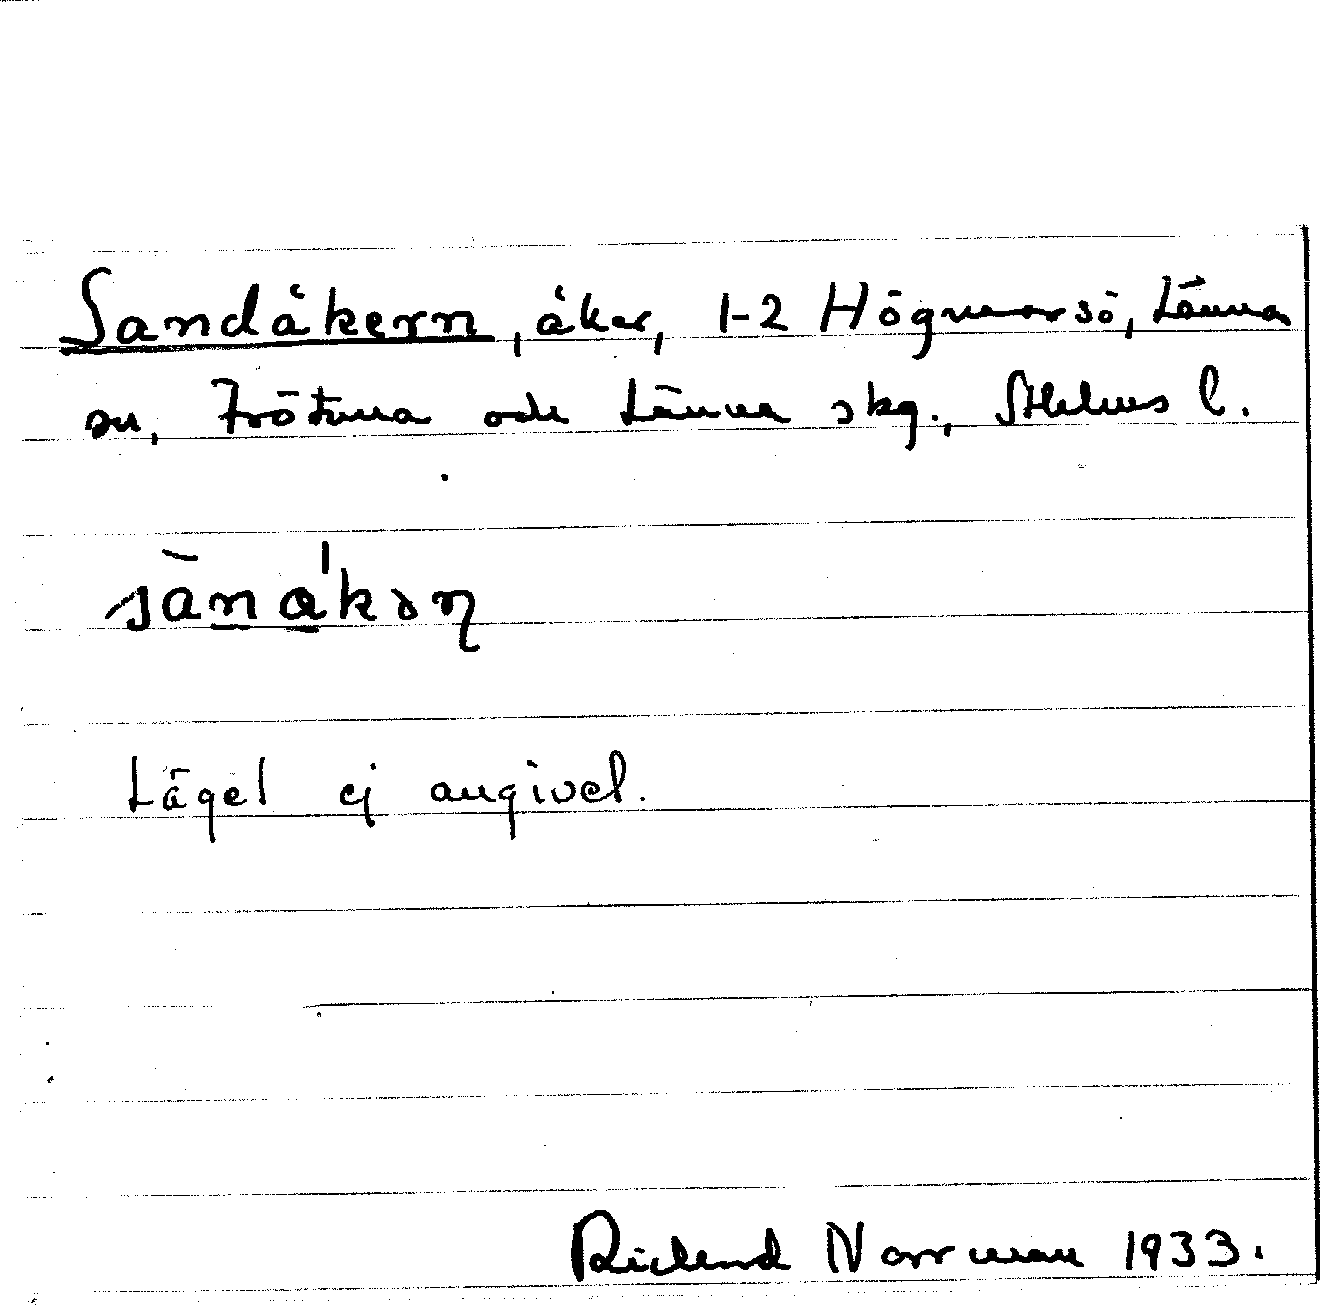 Sandåkern, åker, 1-2 Högmarsö, Länna
sn, Frötuna och Länna skg., Sthlms l.
sàna̠'kəɳ
Läget ej angivet.
Rickard Norrman 1933.